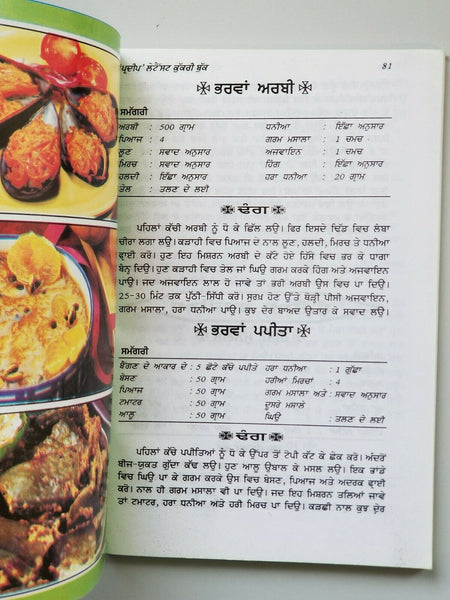 'ਪ੍ਰਦੀਪ' ਲੇਟੈਸਟ ਕੁੱਕਰੀ ਬੁੱਕ 81
ਭਰਵਾਂ ਅਰਬੀ
ਸਮੱਗਰੀ
ਅਰਬੀ : 500 ਗ੍ਰਾਮ ਧਨੀਆ : ਇੱਛਾ ਅਨੁਸਾਰ
ਪਿਆਜ਼ : 4 ਗਰਮ ਮਸਾਲਾ : 1 ਚਮਚ
ਲੂਣ : ਸਵਾਦ ਅਨੁਸਾਰ ਅਜਵਾਇਨ : 1 ਚਮਚ
ਮਿਰਚ : ਸਵਾਦ ਅਨੁਸਾਰ ਹਿੰਗ : ਇੱਛਾ ਅਨੁਸਾਰ
ਹਲਦੀ : ਇੱਛਾ ਅਨੁਸਾਰ ਹਰਾ ਧਨੀਆ : 20 ਗ੍ਰਾਮ
ਤੇਲ : ਤਲਣ ਦੇ ਲਈ
ਢੰਗ
ਪਹਿਲਾਂ ਕੱਚੀ ਅਰਬੀ ਨੂੰ ਧੋ ਕੇ ਛਿੱਲ ਲਉ। ਫਿਰ ਇਸਦੇ ਢਿੱਡ ਵਿਚ ਲੰਬਾ
ਚੀਰਾ ਲਗਾ ਲਉ। ਕੜਾਹੀ ਵਿਚ ਪਿਆਜ ਦੇ ਨਾਲ ਲੂਣ, ਹਲਦੀ, ਮਿਰਚ ਤੇ ਧਨੀਆ
ਫ੍ਰਾਈ ਕਰੋ। ਹੁਣ ਇਹ ਮਿਸ਼ਰਨ ਅਰਬੀ ਦੇ ਕੱਟੇ ਹੋਏ ਹਿੱਸੇ ਵਿਚ ਭਰ ਕੇ ਧਾਗਾ
ਬੰਨ੍ਹ ਦਿਉ। ਹੁਣ ਕੜਾਹੀ ਵਿਚ ਤੇਲ ਜਾਂ ਘਿਉ ਗਰਮ ਕਰਕੇ ਹਿੰਗ ਅਤੇ ਅਜਵਾਇਨ
ਪਾਉ। ਜਦ ਅਜਵਾਇਨ ਲਾਲ ਹੋ ਜਾਵੇ ਤਾਂ ਭਰੀ ਅਰਬੀ ਉਸ ਵਿਚ ਪਾ ਦਿਉ।
25-30 ਮਿੰਟ ਤਕ ਪੁੱਠੀ-ਸਿੱਧੀ ਕਰੋ। ਸੁਰਖ਼ ਹੋਣ ਉੱਤੇ ਥੋੜ੍ਹੀ ਪੀਸੀ ਅਜਵਾਇਨ,
ਗਰਮ ਮਸਾਲਾ, ਹਰਾ ਧਨੀਆ ਪਾਉ। ਕੁਝ ਦੇਰ ਬਾਅਦ ਉਤਾਰ ਕੇ ਸਵਾਦ ਲਉ।
ਭਰਵਾਂ ਪਪੀਤਾ
ਸਮੱਗਰੀ
ਬੈਂਗਣ ਦੇ ਆਕਾਰ ਦੇ : 5 ਛੋਟੇ ਕੱਚੇ ਪਪੀਤੇ ਹਰਾ ਧਨੀਆ : 1 ਗੁੱਛਾ
ਬੇਸਣ : 50 ਗ੍ਰਾਮ ਹਰੀਆਂ ਮਿਰਚਾਂ : 4
ਪਿਆਜ : 50 ਗ੍ਰਾਮ ਗਰਮ ਮਸਾਲਾ ਅਤੇ : ਸਵਾਦ ਅਨੁਸਾਰ
ਟਮਾਟਰ : 50 ਗ੍ਰਾਮ ਦੂਸਰੇ ਮਸਾਲੇ
ਆਲੂ : 50 ਗ੍ਰਾਮ ਘਿਉ : ਤਲਣ ਦੇ ਲਈ
ਢੰਗ
ਪਹਿਲਾਂ ਕੱਚੇ ਪਪੀਤਿਆਂ ਨੂੰ ਧੋ ਕੇ ਉੱਪਰ ਤੋਂ ਟੋਪੀ ਕੱਟ ਕੇ ਛੇਕ ਕਰੋ। ਅੰਦਰੋਂ
ਬੀਜ-ਯੁਕਤ ਗੁੱਦਾ ਕੱਢ ਲਉ। ਹੁਣ ਆਲੂ ਉਬਾਲ ਕੇ ਮਸਲ ਲਉ। ਇਕ ਭਾਂਡੇ
ਵਿਚ ਘਿਉ ਪਾ ਕੇ ਗਰਮ ਕਰਕੇ ਉਸ ਵਿਚ ਬੇਸਣ, ਪਿਆਜ ਅਤੇ ਅਦਰਕ ਫ੍ਰਾਈ
ਕਰੋ। ਨਾਲ ਹੀ ਗਰਮ ਮਸਾਲਾ ਵੀ ਪਾ ਦਿਉ। ਜਦ ਇਹ ਮਿਸ਼ਰਨ ਤਲਿਆ ਜਾਵੇ
ਤਾਂ ਟਮਾਟਰ, ਹਰਾ ਧਨੀਆ ਅਤੇ ਹਰੀ ਮਿਰਚ ਪਾ ਦਿਉ। ਕੜਛੀ ਨਾਲ ਕੁਝ ਦੇਰ